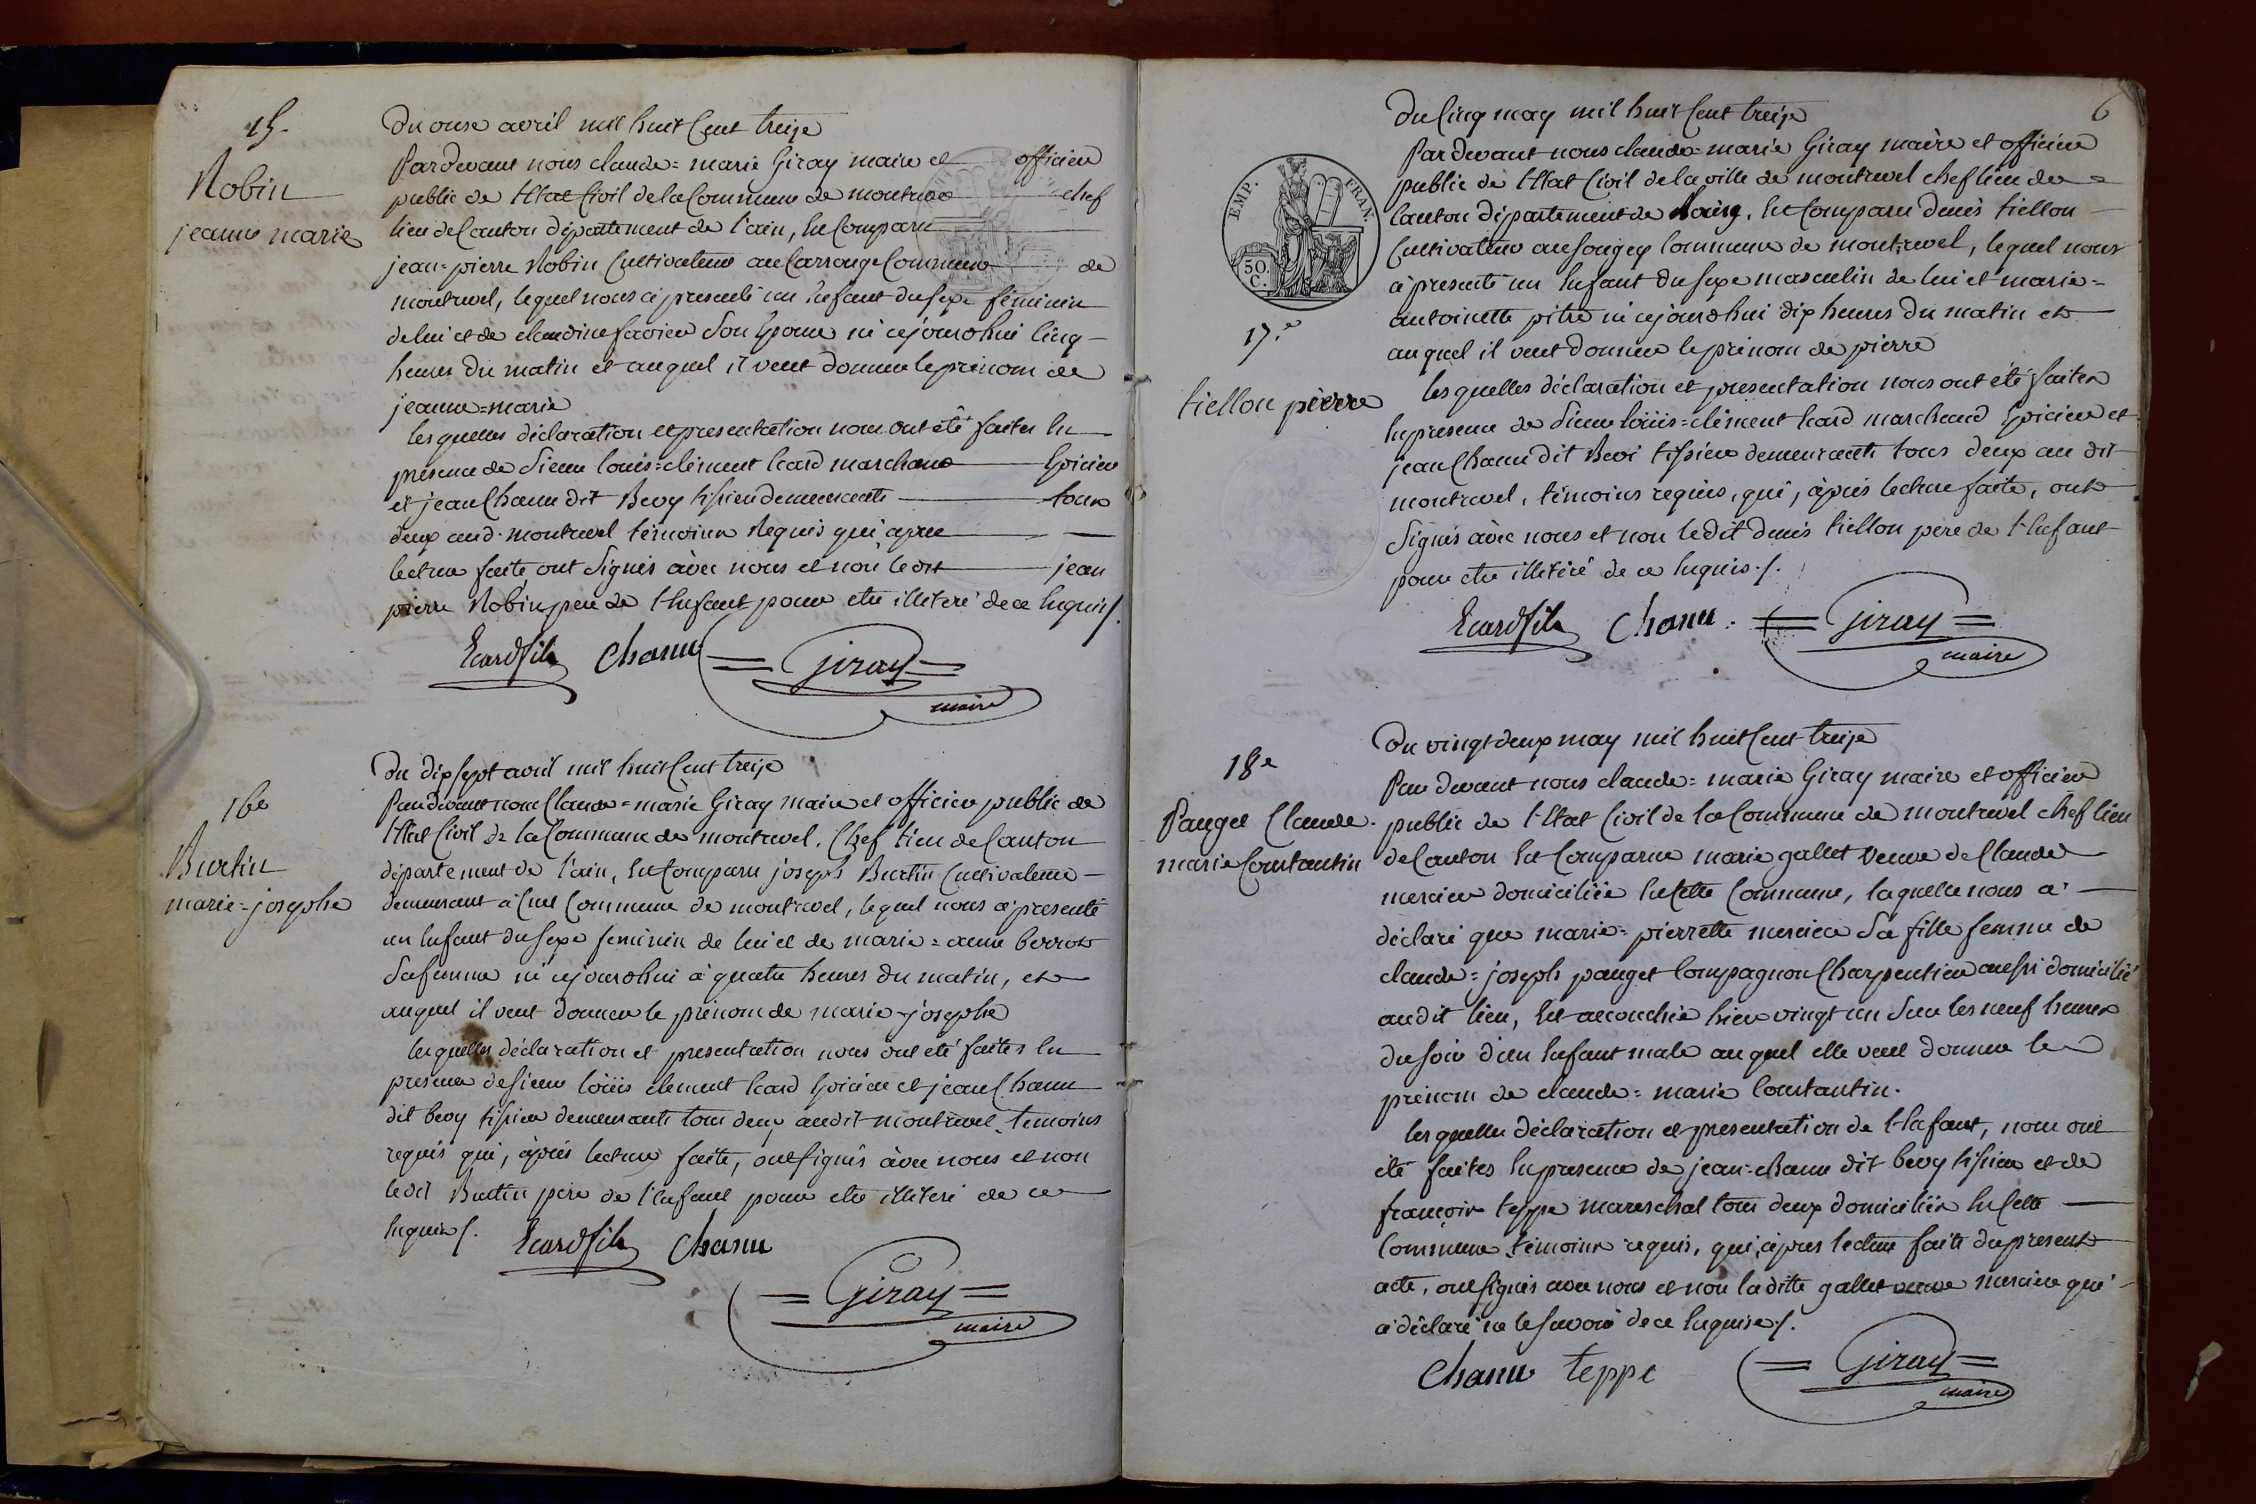 15.
Robin
jeanne marie
Du onse avril mil huit Cent treize
Pardevant nous claude=marie Giray maire et officier
public de l'Etat Civil de la Commune de montrevel chef
lieu de Canton département de l'ain, Est Comparu
jean=pierre Robin Cultivateur au Carrouge Commune de
montrevel, lequel nous à presenté un Enfant du sexe féminin
de lui et de claudine favier Son Epouse né cejourdhui Cinq
heures du matin et auquel il veut donner le prénom de
jeanne=marie
Lesquelles déclaration et presentation nous ont été faites En
présence de Sieur louis=clément Ecard marchand Epicier
et jean Chanu dit Bevy tissier demeurants tous
deux aud. montrevel témoins Requis qui après
lecture faite, ont Signés àvec nous et non le dit jean
pierre Robin pere de l'Enfant pour etre illiteré de ce Enquis /.
Ecard fils Chanu Giray
maire
16e
Burtin
marie=josephe
Du dix sept avril mil huit Cent treize
Pardevant nous Claude=marie Giray maire et officier public de
l'Etat Civil de la Commune de montrevel, Chef lieu de Canton
département de l'ain, Est Comparu joseph Burtin Cultivateur
demeurant à Commune de montrevel, lequel nous à presenté
un Enfant du sexe feminin de lui et de marie=anne
Sa femme né cejourdhui à quatre heures du matin, et
auquel il veut donner le prénom de marie-josephe
Lesquelles déclaration et presentation nous ont eté faites En
presence de Sieur loüis clement Ecard Epicier et jean Chanu
dit bevy tissier demeurants tous deux audit montrevel, témoins
requis qui, àprès lecture faite, ont signés àvec nous et non
ledit Burtin père de l'Enfant pour etre illiteré de ce
Enquis /. Ecard fils Chanu
Giray
maire
6
EMP. FRAN.
50.
C.
17.e
tiellon pierre
Du Cinq may mil huit Cent treize
Pardevant nous claude=marie Giray maire et officier
public de l'Etat Civil de la ville de montrevel chef lieu de
Canton département de Est Comparu denis tiellon
Cultivateur au Sougey Commune de montrevel, lequel nous
à presenté un Enfant du sexe masculin de lui et marie=
antoinette pitre né cejourdhui dix heures du matin et
auquel il veut donner le prénom de pierre
Lesquelles déclaration et presentation nous ont été faites
En presence de Sieur loüis=clément Ecard marchand Epicier et
jean Chanu dit Bevi tissier demeurants tous deux au dit
montrevel, témoins requis, qui, àprès lecture faite, ont
Signés àvec nous et non le dit denis tiellon père de l'Enfant
pour etre illiteré de ce Enquis ./.
Ecard fils Chanu. Giray
maire
18e
Panget Claude.
marie Constantin
Du vingt deux may mil huit Cent treize
Par devant nous claude=marie Giray maire et officier
public de l'Etat Civil de la Commune de montrevel chef lieu
de Canton Est Comparue marie gallet veuve de Claude
mercier domiciliée En Cette Commune, laquelle nous a
déclaré que marie=pierrette mercier Sa fille femme de
claude=joseph panget Compagnon Charpentier aussi domicilié
audit lieu, Est accouchée hier vingt un Sur les neuf heures
du soir d'un Enfant male auquel elle veut donner le
prénom de claude=marie Constantin.
Lesquelles déclaration et presentation de l'Enfant, nous ont
été faites En presence de jean=chanu dit bevy tissier et de
françois teppe mareschal tous deux domiciliés En Cette
Commune, témoins requis, qui, àprès lecture faite du present
acte, ont signés avec nous et non la ditte gallet veuve mercier qui
à déclaré ne le savoir de ce Enquise ./.
Chanu teppe Giray
maire